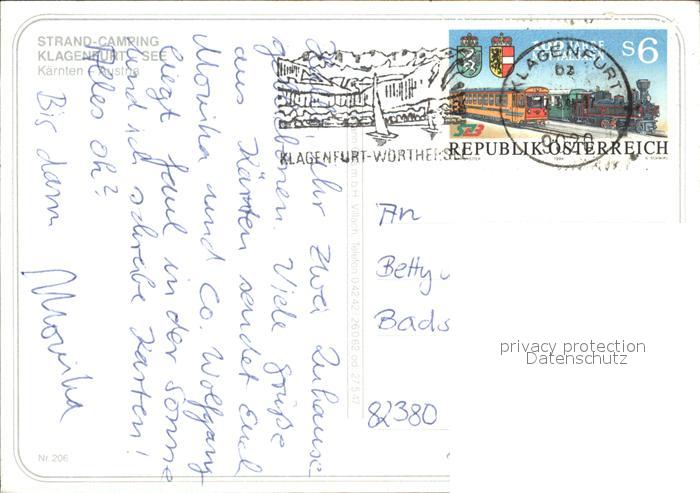 STRAND-CAMPING
KLAGENFURT SEE
Kärnten - Austria
Ihr zwei Zuhause
gebliebenen. Viele Grüße
aus Kärnten sendet Euch
Monika und Co. Wolfgang
liegt faul in der Sonne
und ich schreibe Karten!
Alles oh?
Bis dann
Monika
Nr. 206
Villach, Telefon 0 42 42
KLAGENFURT-WÖRTHERSEE
KLAGENFURT
S 6
REPUBLIK ÖSTERREICH
1994
An
Betty
Bads
82380
privacy protection
Datenschutz